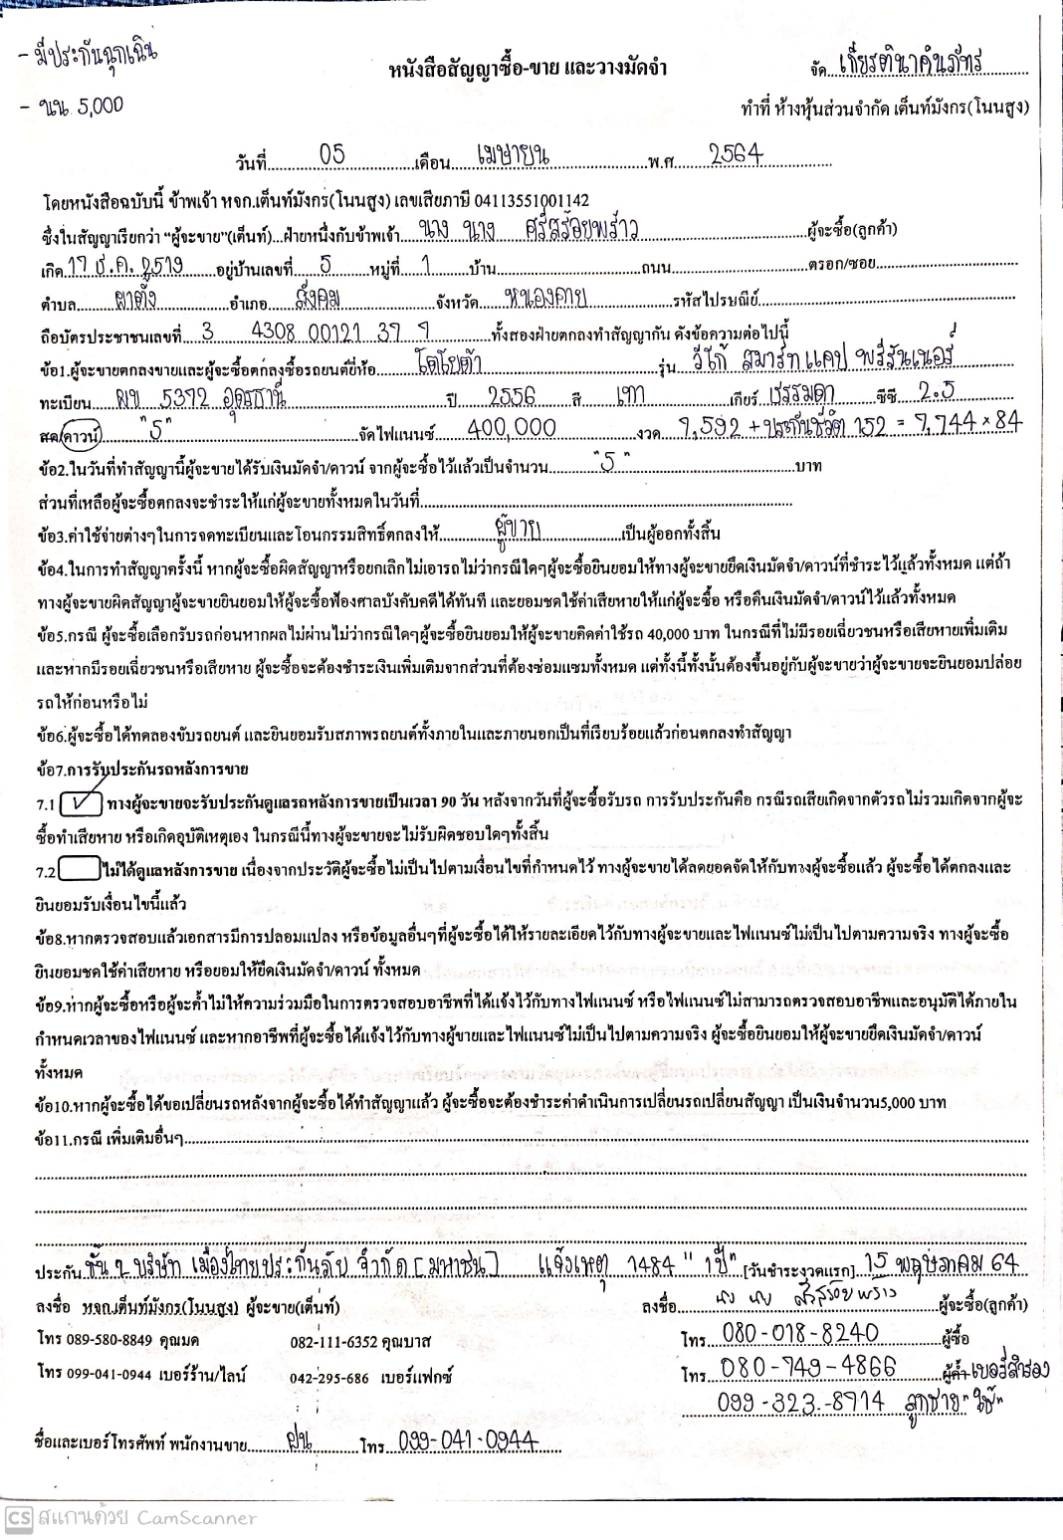 - มีประกันฉุกเฉิน
หนังสือสัญญาซื้อ-ขาย และวางมัดจำ
จัด เกียรตินาคินภัทร
- นน 5,000
ทำที่ ห้างหุ้นส่วนจำกัด เต็นท์มังกร(โนนสูง)
วันที่ 05 เดือน เมษายน พ.ศ 2564
โดยหนังสือฉบับนี้ ข้าพเจ้า หจก.เต็นท์มังกร(โนนสูง) เลขเสียภาษี 04113551001142
ซึ่งในสัญญาเรียกว่า "ผู้จะขาย"(เต็นท์)...ฝ่ายหนึ่งกับข้าพเจ้า นาง นาง ศรีสร้อยพร้าว ผู้จะซื้อ(ลูกค้า)
เกิด 17 ธ.ค. 2519 อยู่บ้านเลขที่ 5 หมู่ที่ 1 บ้าน ถนน ตรอก/ซอย
ตำบล ผาตั้ง อำเภอ สังคม จังหวัด หนองคาย รหัสไปรษณีย์
ถือบัตรประชาชนเลขที่ 3 4308 00121 37 9 ทั้งสองฝ่ายตกลงทำสัญญากัน ดังข้อความต่อไปนี้
ข้อ1.ผู้จะขายตกลงขายและผู้จะซื้อตกลงซื้อรถยนต์ยี่ห้อ โตโยต้า รุ่น วีโก้ สมาร์ทแคป พรีรันเนอร์
ทะเบียน ผข 5372 อุดรธานี ปี 2556 สี เทา เกียร์ ธรรมดา ซีซี 2.5
สด/ดาวน์ "5" จัดไฟแนนซ์ 400,000 งวด 7,592 + ประกันชีวิต 152 = 7,744 × 84
ข้อ2.ในวันที่ทำสัญญานี้ผู้จะขายได้รับเงินมัดจำ/ดาวน์ จากผู้จะซื้อไว้แล้วเป็นจำนวน "5" บาท
ส่วนที่เหลือผู้จะซื้อตกลงจะชำระให้แก่ผู้จะขายทั้งหมดในวันที่
ข้อ3.ค่าใช้จ่ายต่างๆในการจดทะเบียนและโอนกรรมสิทธิ์ตกลงให้ ผู้ขาย เป็นผู้ออกทั้งสิ้น
ข้อ4.ในการทำสัญญาครั้งนี้ หากผู้จะซื้อผิดสัญญาหรือยกเลิกไม่เอารถไม่ว่ากรณีใดๆผู้จะซื้อยินยอมให้ทางผู้จะขายยึดเงินมัดจำ/ดาวน์ที่ชำระไว้แล้วทั้งหมด แต่ถ้า
ทางผู้จะขายผิดสัญญาผู้จะขายยินยอมให้ผู้จะซื้อฟ้องศาลบังคับคดีได้ทันที และยอมชดใช้ค่าเสียหายให้แก่ผู้จะซื้อ หรือคืนเงินมัดจำ/ดาวน์ไว้แล้วทั้งหมด
ข้อ5.กรณี ผู้จะซื้อเลือกรับรถก่อนหากผลไม่ผ่านไม่ว่ากรณีใดๆผู้จะซื้อยินยอมให้ผู้จะขายคิดค่าใช้รถ 40,000 บาท ในกรณีที่ไม่มีรอยเฉี่ยวชนหรือเสียหายเพิ่มเติม
และหากมีรอยเฉี่ยวชนหรือเสียหาย ผู้จะซื้อจะต้องชำระเงินเพิ่มเติมจากส่วนที่ต้องซ่อมแซมทั้งหมด แต่ทั้งนี้ทั้งนั้นต้องขึ้นอยู่กับผู้จะขายว่าผู้จะขายจะยินยอมปล่อย
รถให้ก่อนหรือไม่
ข้อ6.ผู้จะซื้อได้ทดลองขับรถยนต์ และยินยอมรับสภาพรถยนต์ทั้งภายในและภายนอกเป็นที่เรียบร้อยแล้วก่อนตกลงทำสัญญา
ข้อ7.การรับประกันรถหลังการขาย
7.1 ✓ ทางผู้จะขายจะรับประกันดูแลรถหลังการขายเป็นเวลา 90 วัน หลังจากวันที่ผู้จะซื้อรับรถ การรับประกันคือ กรณีรถเสียเกิดจากตัวรถไม่รวมเกิดจากผู้จะ
ซื้อทำเสียหาย หรือเกิดอุบัติเหตุเอง ในกรณีนี้ทางผู้จะขายจะไม่รับผิดชอบใดๆทั้งสิ้น
7.2 ไม่ได้ดูแลหลังการขาย เนื่องจากประวัติผู้จะซื้อไม่เป็นไปตามเงื่อนไขที่กำหนดไว้ ทางผู้จะขายได้ลดยอดจัดให้กับทางผู้จะซื้อแล้ว ผู้จะซื้อได้ตกลงและ
ยินยอมรับเงื่อนไขนี้แล้ว
ข้อ8.หากตรวจสอบแล้วเอกสารมีการปลอมแปลง หรือข้อมูลอื่นๆที่ผู้จะซื้อได้ให้รายละเอียดไว้กับทางผู้จะขายและไฟแนนซ์ไม่เป็นไปตามความจริง ทางผู้จะซื้อ
ยินยอมชดใช้ค่าเสียหาย หรือยอมให้ยึดเงินมัดจำ/ดาวน์ ทั้งหมด
ข้อ9.หากผู้จะซื้อหรือผู้จะค้ำไม่ให้ความร่วมมือในการตรวจสอบอาชีพที่ได้แจ้งไว้กับทางไฟแนนซ์ หรือไฟแนนซ์ไม่สามารถตรวจสอบอาชีพและอนุมัติได้ภายใน
กำหนดเวลาของไฟแนนซ์ และหากอาชีพที่ผู้จะซื้อได้แจ้งไว้กับทางผู้ขายและไฟแนนซ์ไม่เป็นไปตามความจริง ผู้จะซื้อยินยอมให้ผู้จะขายยึดเงินมัดจำ/ดาวน์
ทั้งหมด
ข้อ10.หากผู้จะซื้อได้ขอเปลี่ยนรถหลังจากผู้จะซื้อได้ทำสัญญาแล้ว ผู้จะซื้อจะต้องชำระค่าดำเนินการเปลี่ยนรถเปลี่ยนสัญญา เป็นเงินจำนวน5,000 บาท
ข้อ11.กรณี เพิ่มเติมอื่นๆ
ประกัน ชั้น 2 บริษัท เมืองไทยประกันภัย จำกัด [มหาชน] แจ้งเหตุ 1484 "1ปี" [วันชำระงวดแรก] 15 พฤษภาคม 64
ลงชื่อ หจก.เต็นท์มังกร(โนนสูง) ผู้จะขาย(เต็นท์) ลงชื่อ นาง นาง ศรีสร้อยพร้าว ผู้จะซื้อ(ลูกค้า)
โทร 089-580-8849 คุณมด 082-111-6352 คุณบาส โทร 080-018-8240 ผู้ซื้อ
โทร 099-041-0944 เบอร์ร้าน/ไลน์ 042-295-686 เบอร์แฟกซ์ โทร 080-749-4866 ผู้ค้ำ เบอร์สำรอง
099-323-8914 ลูกชาย
ชื่อและเบอร์โทรศัพท์ พนักงานขาย ฝน โทร 099-041-0944
CS สแกนด้วย CamScanner